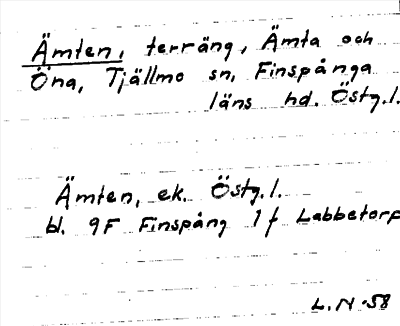 Ämten, terräng, Ämta och
Öna, Tjällmo sn, Finspånga
läns hd. Östg.l.
Ämten, ek. Östg.l.
bl. 9F Finspång 1f Labbetorp
L.N.58